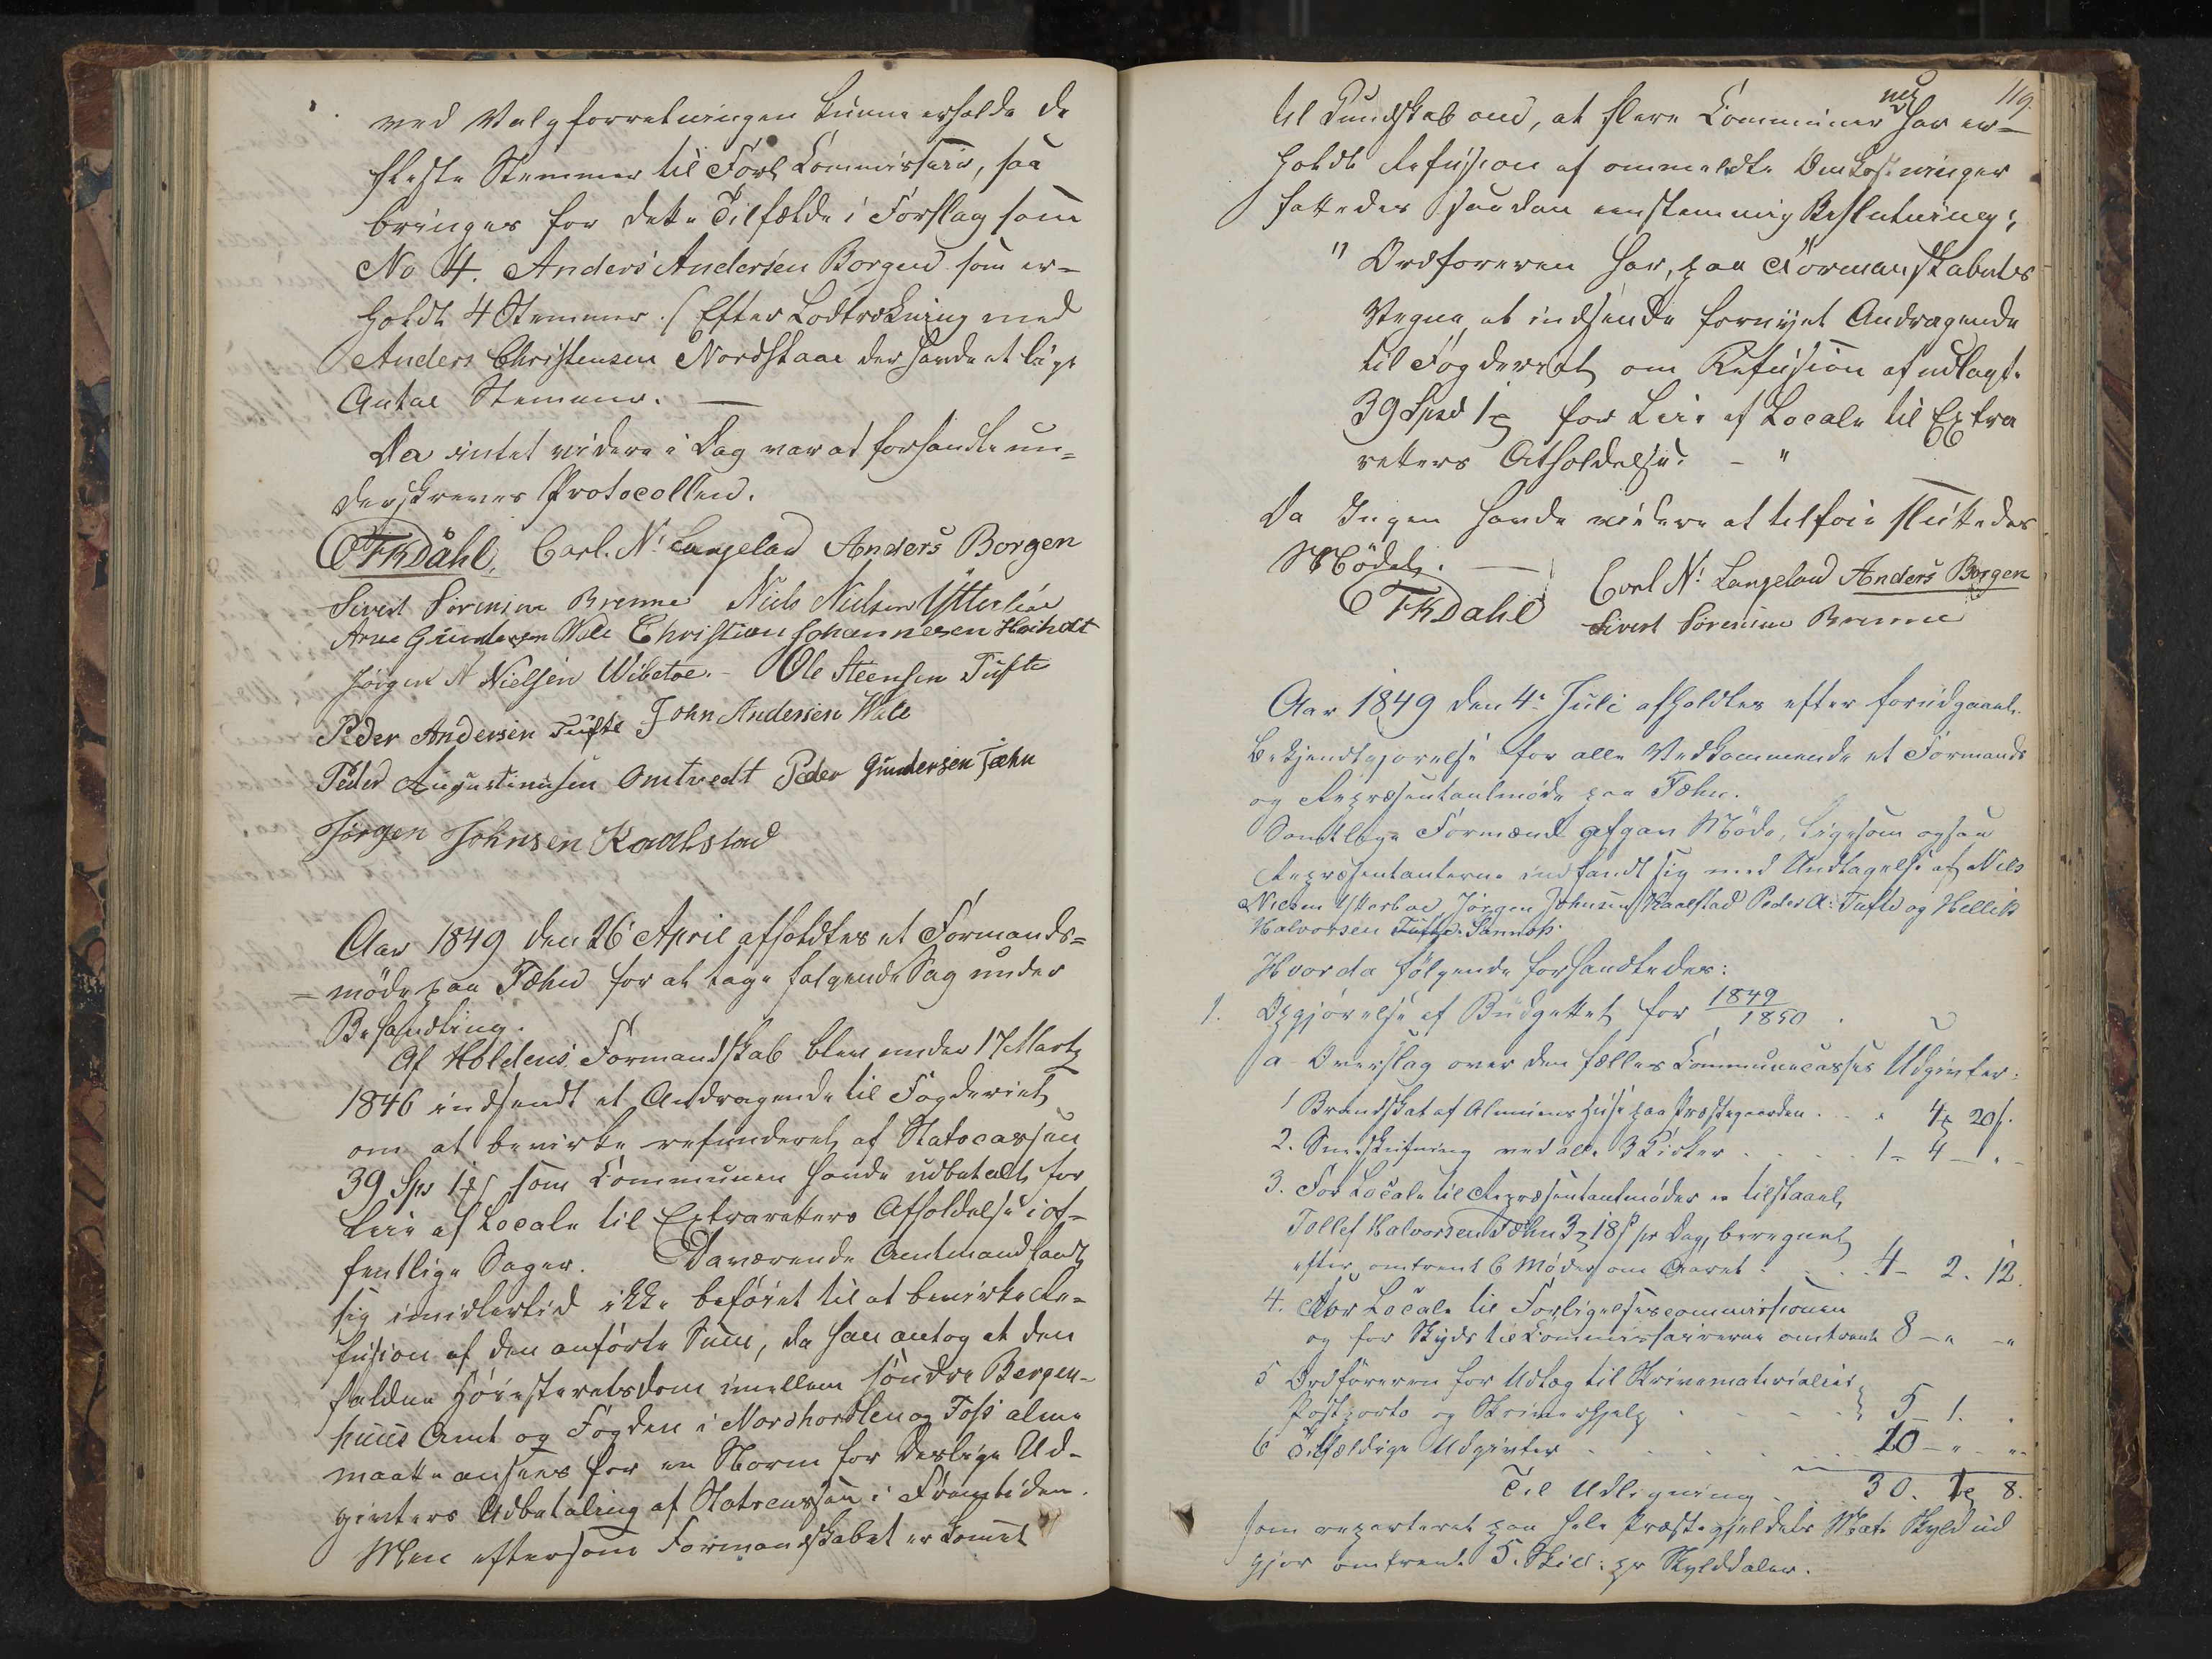 ved Valgforretningen kunne erholde de
fleste Stemmer til Forl. Commissair, saa
bringes for dette Tilfælde i Forslag som
No 4. Anders Andersen Borgen som er-
holdt 4 Stemmer. / Efter Lodtrækning med
Anders Christensen Nordskaae der havde et lige
Antal Stemmer. —
Da intet videre i Dag var at forhandle un=
derskreves Protocollen.
TKDahl. Carl. N: Langeland Anders Borgen
Sivert Sörensen Brenne Niels Nielsen Ytterböe
Arne Gundersen Wale Christian Johannesen Hoiholt
Jörgen A Nielsen Wibetoe. - Ole Steensen Tufte
Peder Andersen Tufte John Andersen Wale
Peder Augustinusen Omtvedt Peder Gundersen Fæhn
Jørgen Johnsen Kaalstad
Aar 1849 den 26 April afholdtes et Formands=
= möde paa Fæhn for at tage følgende Sag under
Behandling.
Af Holdens Formandskab blev under 17 Marts
1846 indsendt et Andragende til Fogderiet
om at bevirke refunderet af Statscassen
39 Sps 1 som Communen havde udbetalt for
Leie af Locale til Extraretters Afholdelse i of-
fentlige Sager. Daværende Amtmand fandt
sig imidlertid ikke beföiet til at bevirke Re-
fusion af den anförte Sum, da han antog at den
faldne Höiesteretsdom imellem söndre Bergen-
huus Amt og Fogden i Nordhordlen og Foss alene
maatte ansees for en Norm for deslige Ud-
givters Udbetaling af Statscassen i Fremtiden.
Men eftersom Formandskabet er kommet
119.
til Kundskab om, at flere Communer nu har er-
holdt Refusion af ommeldte Omkostninger
fattedes saadan eenstemmig Beslutning:
" Ordføreren har, paa Formandskabets
Vegne, at indsende fornyet Andragende
til Fogderiet om Refusion af udlagte
39 Spd 1 for Leie af Locale til Extra
retters Afholdelse. - "
Da Ingen havde videre at tilføie sluttedes
Mödet. —
TKDahl Carl N: Langeland Anders Borgen
Sivert Sörensen Brenne
Aar 1849 den 4: Juli afholdtes efter forudgaaet
Bekjendtgjørelse for alle Vedkommende et Formands
og Repræsentantmöde paa Fæhn.
Samtlige Formænd afgav Möde, ligesom ogsaa
Repræsentanterne indfandt sig med Undtagelse af Niels
Nielsen Ytterboe Jörgen Johnsen Kaalstad Peder A: Tufte og Hellik
Halvorsen Tufte. Sannæs.
Hvor da følgende forhandledes:
1. Opgjørelse af Budgettet for 1849/1850.
a - Overslag over den fælles Communecasses Udgivter:
1 Brandskat af Almuens Huse paa Præstegaarden . . " 4 20 s.
2. Sneeskufning ved alle 3 Kirker . . . . . 1 - 4 - " -
3. For Locale til Repræsentantmöder er tilstaaet
Tollef Halvorsen Fæhn 3 18 s pr Dag, beregnet
efter omtrent 6 Møder om Aaret . . . . 4 - 2. 12.
4. For Locale til Forligelsescommissionen
og for Skyds til Commissairerne omtrent 8 - " - "
5 Ordföreren for Udlæg til Skrivematerialier
Postporto og Skriverhjelp . . . . 5 - 1. .
6 Tilfældige Udgivter . . . . . 10 - " - "
Til Udligning 30. 2 8.
som reparteret paa hele Præstegjeldets Mat: Skyld ud
gjør omtrent 5. Skill: pr Skylddaler.